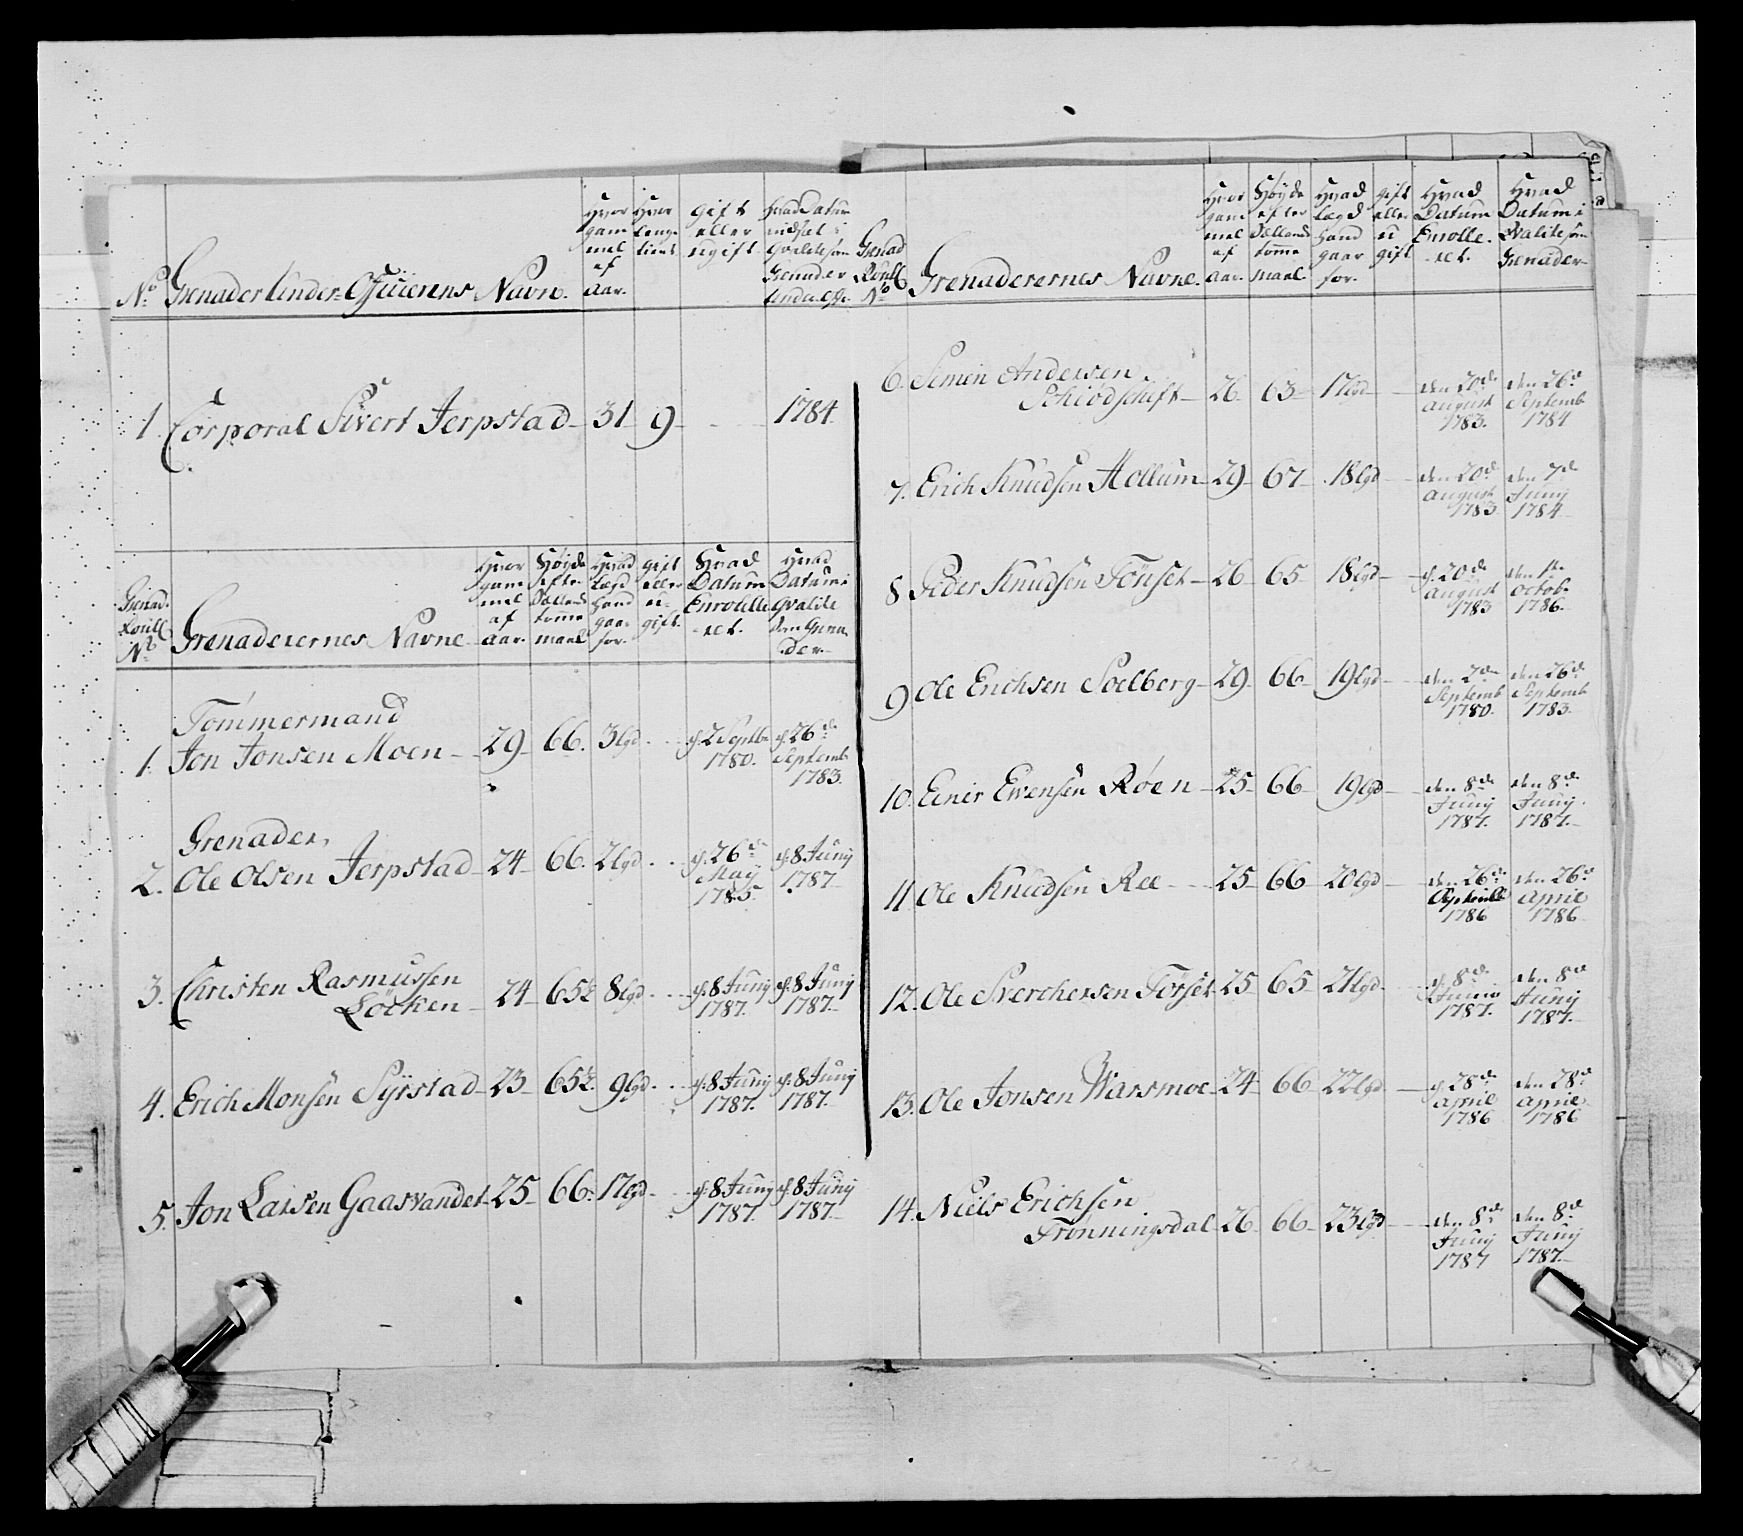 No. Grenader Under-Officierens Navn.
Hvor gammel af aar.
Hvor lenge tient
gift eller ugift.
Hvad Datum indsat i Qvalite som Grenader Underoffr.
1. Corporal Sivert Jerpstad 31 9 1784
Grenad. Roull No.
Grenaderernes Navne
Hvor gammel af aar.
Høyde efter Sællands tomme maal
Hvad Lægd hand gaar for.
gift eller u-gift.
Hvad Datum Enroulleret.
Hvad Datum i Qvalite som Grenader.
Tömmermand
1. Jon Jonsen Moen 29 66. 3 lgd. d. 2 Septbr 1780. d. 26de Septemb 1783.
Grenader,
2. Ole Olsen Jerpstad 24 66. 2 lgd. d. 26de May 1785. d. 8 Junij 1787
3. Christen Rasmussen
Löcken 24 65½ 8 lgd. d. 8 Junij 1787. d. 8 Junij 1787.
4. Erich Monsen Syrstad 23 65½. 9 lgd. d. 8 Junij 1787. d. 8 Junij 1787.
5. Jon Larsen Gaasvandet 25 66. 17 lgd. d. 8 Junij 1787. d. 8 Junij 1787.
Grenad Roull No
Grenaderernes Navne.
Hvor gammel af aar.
Høyde efter Sællands tomme maal.
Hvad Lægd hand gaar for.
gift eller u gift
Hvad Datum Enrolleret.
Hvad Datum i Qvalite som Grenader
6. Simen Andersen
Schiødschift 26 63 17 lgd den 20de august 1783. den 26de Septemb 1784
7. Erich Knudsen Hollum 29 67 18 lgd den 20de august 1783 den 7de Junij 1784
8 Peder Knudsen Tönset 26 65 18 lgd d. 20de august 1783 den 1te octob. 1786.
9 Ole Erichsen Soelberg 29 66 19 lgd den 2den Septemb 1780. den 26de Septemb 1783.
10. Einer Evensen Røen 25 66 19 lgd den 8de Junij 1787. den 8de Junij 1787.
11 Ole Knudsen Ree 25 66 20 lgd den 26de 1786 den 26de April 1786
12. Ole Sverchersen Törset 25 65 21 lgd. d. 8de Junij 1787. den 8de Junij 1787.
13. Ole Jonsen Warsmoe 24 66 22 lgd d. 28de April 1786 den 28de April 1786
14. Niels Erichsen
Trönningsdal 26 66 23 lgd den 8de Junij 1787 den 8de Junij 1787.